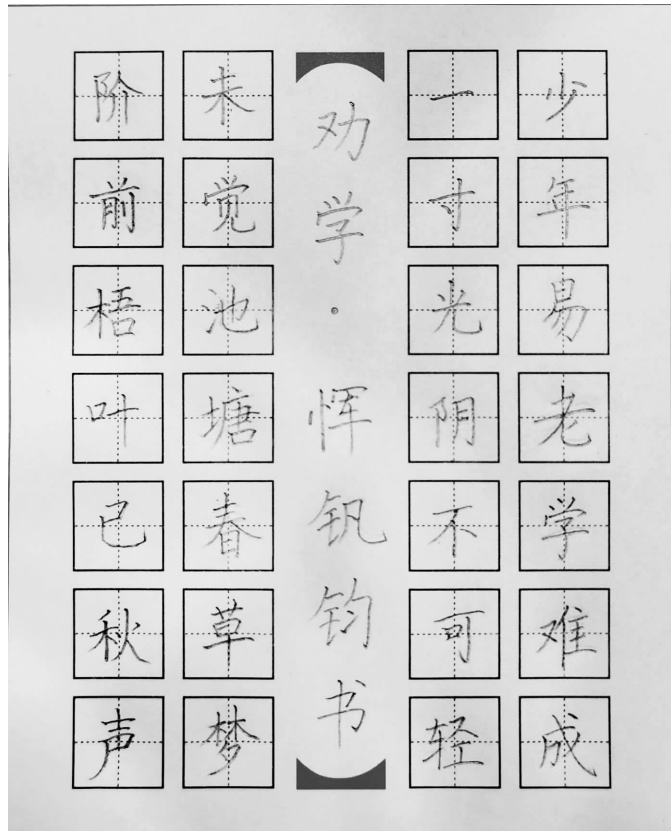 少年易老学难成
一寸光阴不可轻
劝学·恽钒钧书
未觉池塘春草梦
阶前梧叶已秋声